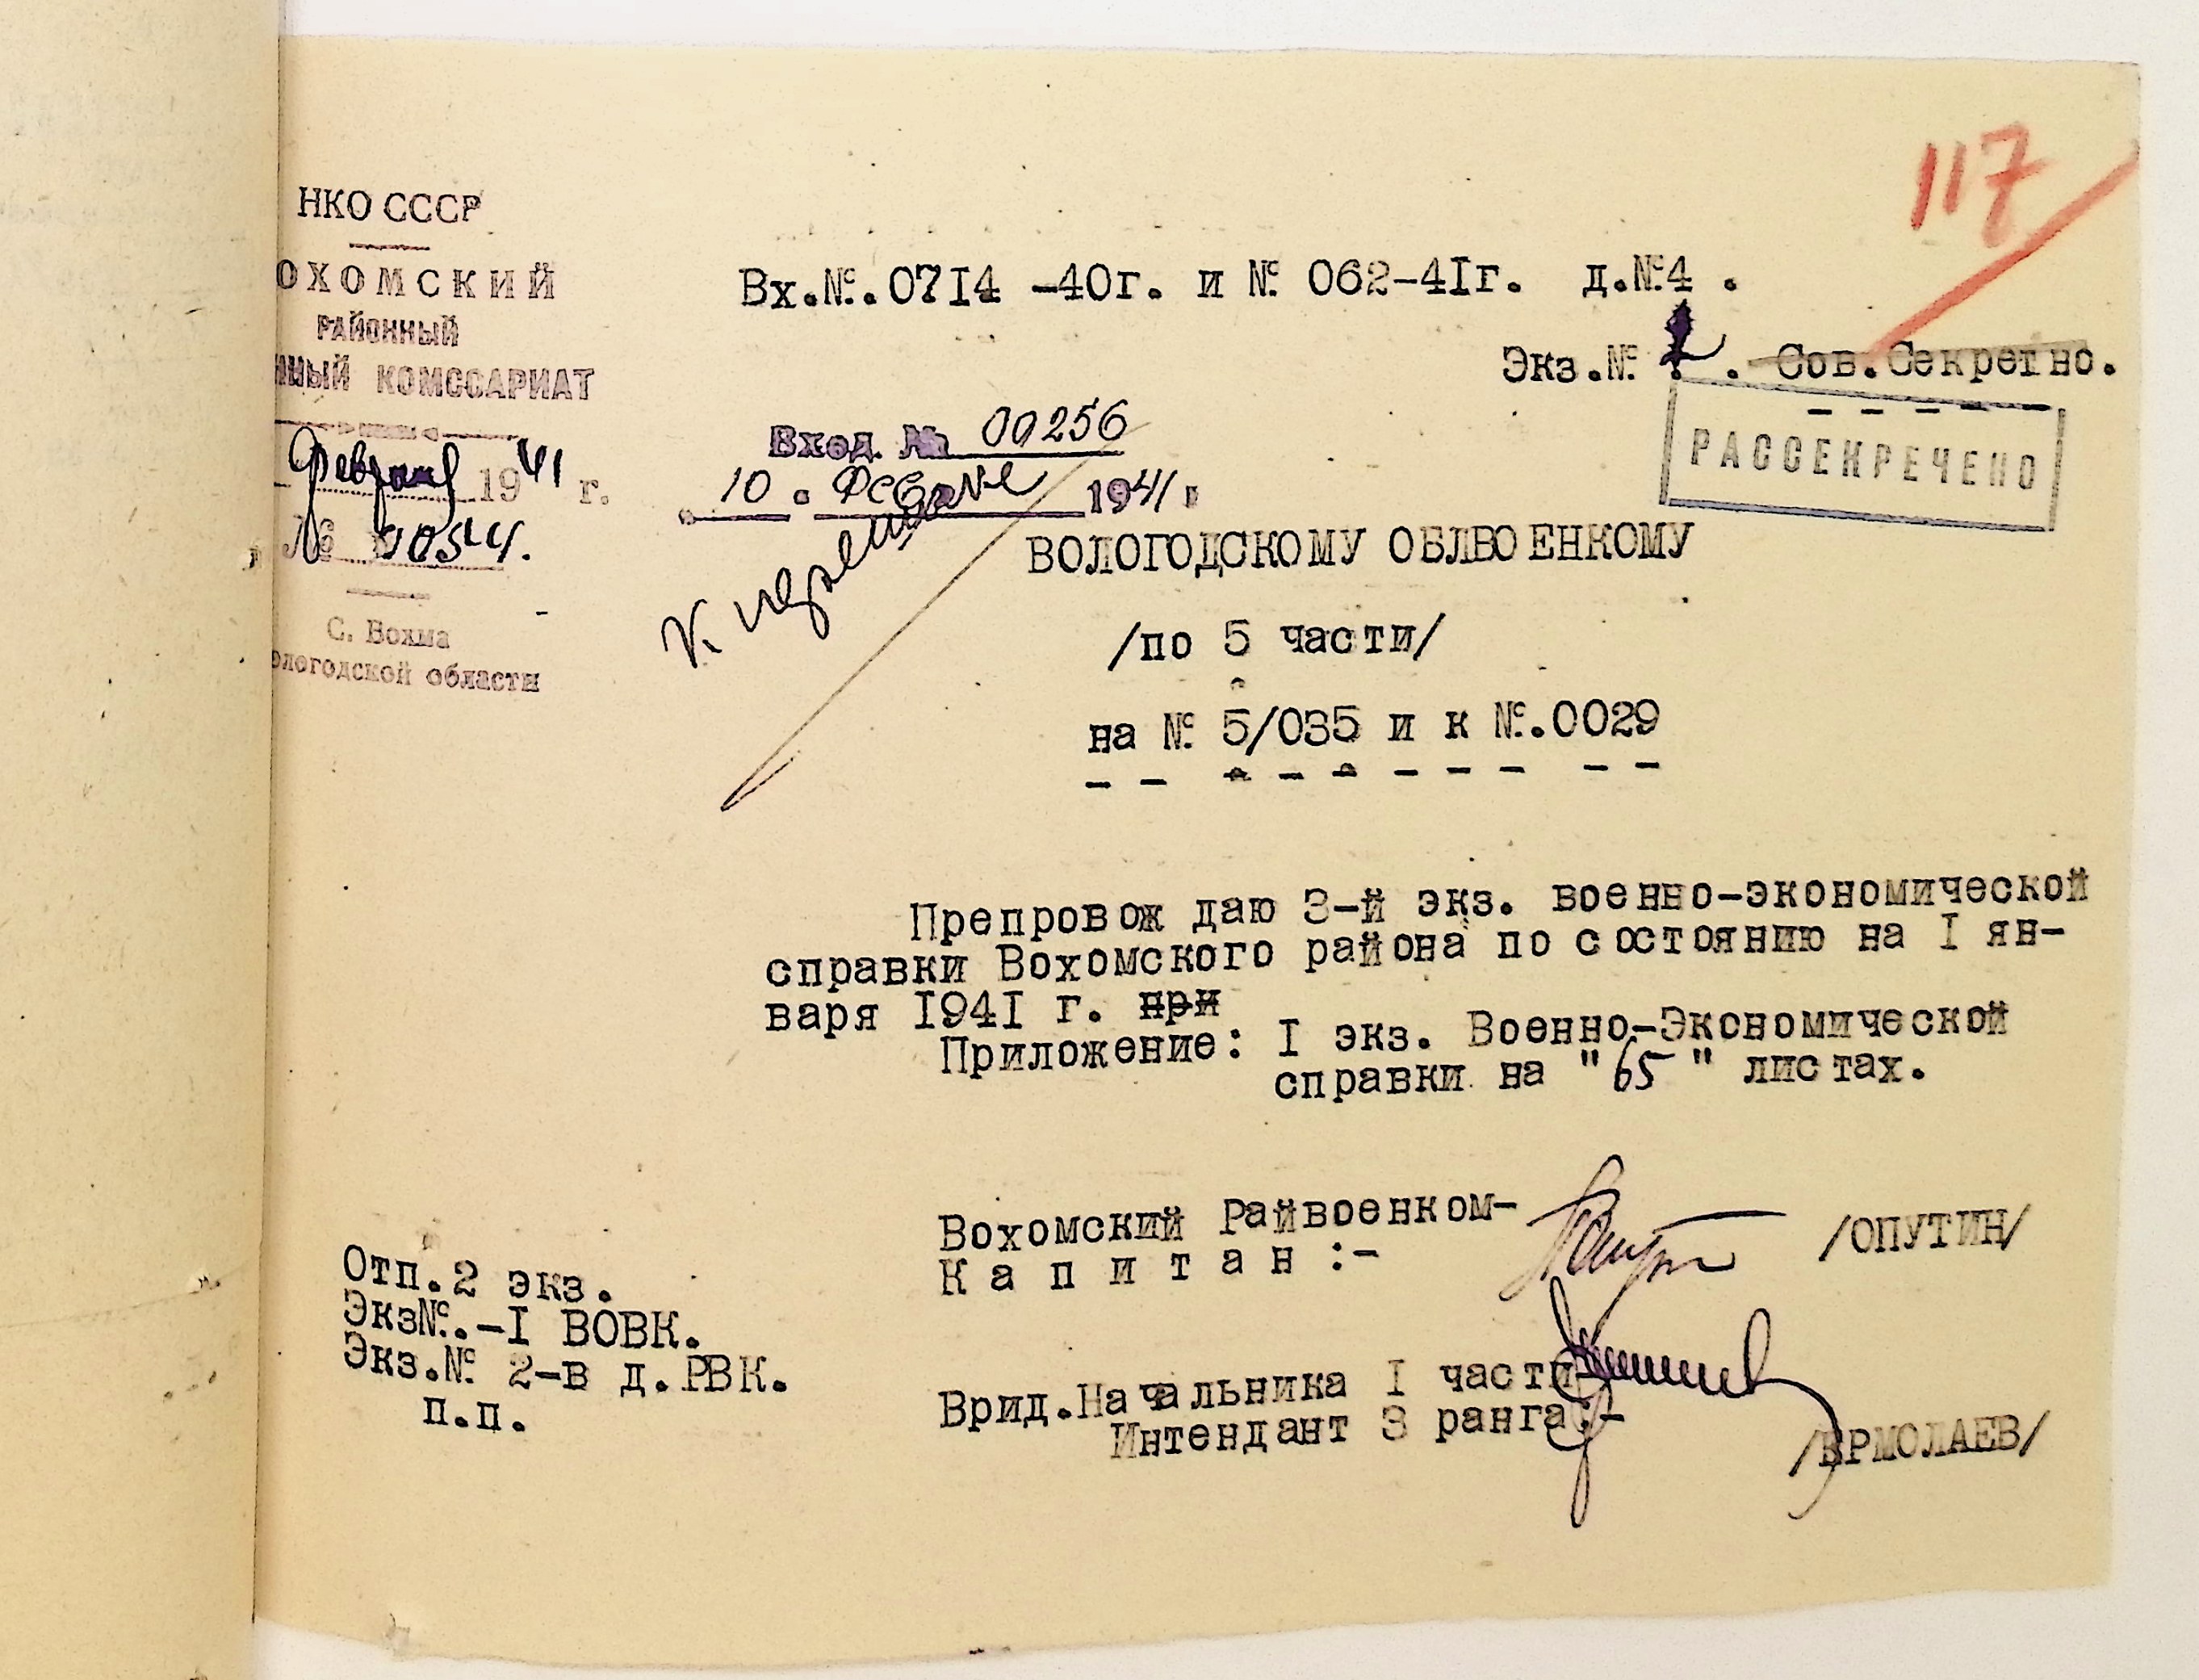 117
НКО СССР
ОХОМСКИЙ
РАЙОННЫЙ
ННЫЙ КОМССАРИАТ
19 41 г.
№
С. Вохма
ологодской области
Вх.№.07I4 -40г. и № 062-4Iг. д.№4 .
Экз.№ . Сов.Секретно.
РАССЕКРЕЧЕНО
Вход. № 00256
10 . февраля 1941 г
К
ВОЛОГОДСКОМУ ОБЛВОЕНКОМУ
/по 5 части/
на № 5/035 и к №.0029
Препровождаю 3-й экз. военно-экономической
справки Вохомского района по состоянию на I ян-
варя I94I г. при
Приложение: I экз. Военно-Экономической
справки на "65" листах.
Вохомский Райвоенком-
К а п и т а н :- /ОПУТИН/
Врид.Начальника I части-
Интендант 3 ранга:-
/ЕРМОЛАЕВ/
Отп.2 экз.
Экз№.-I ВОВК.
Экз.№ 2-в д.РВК.
п.п.